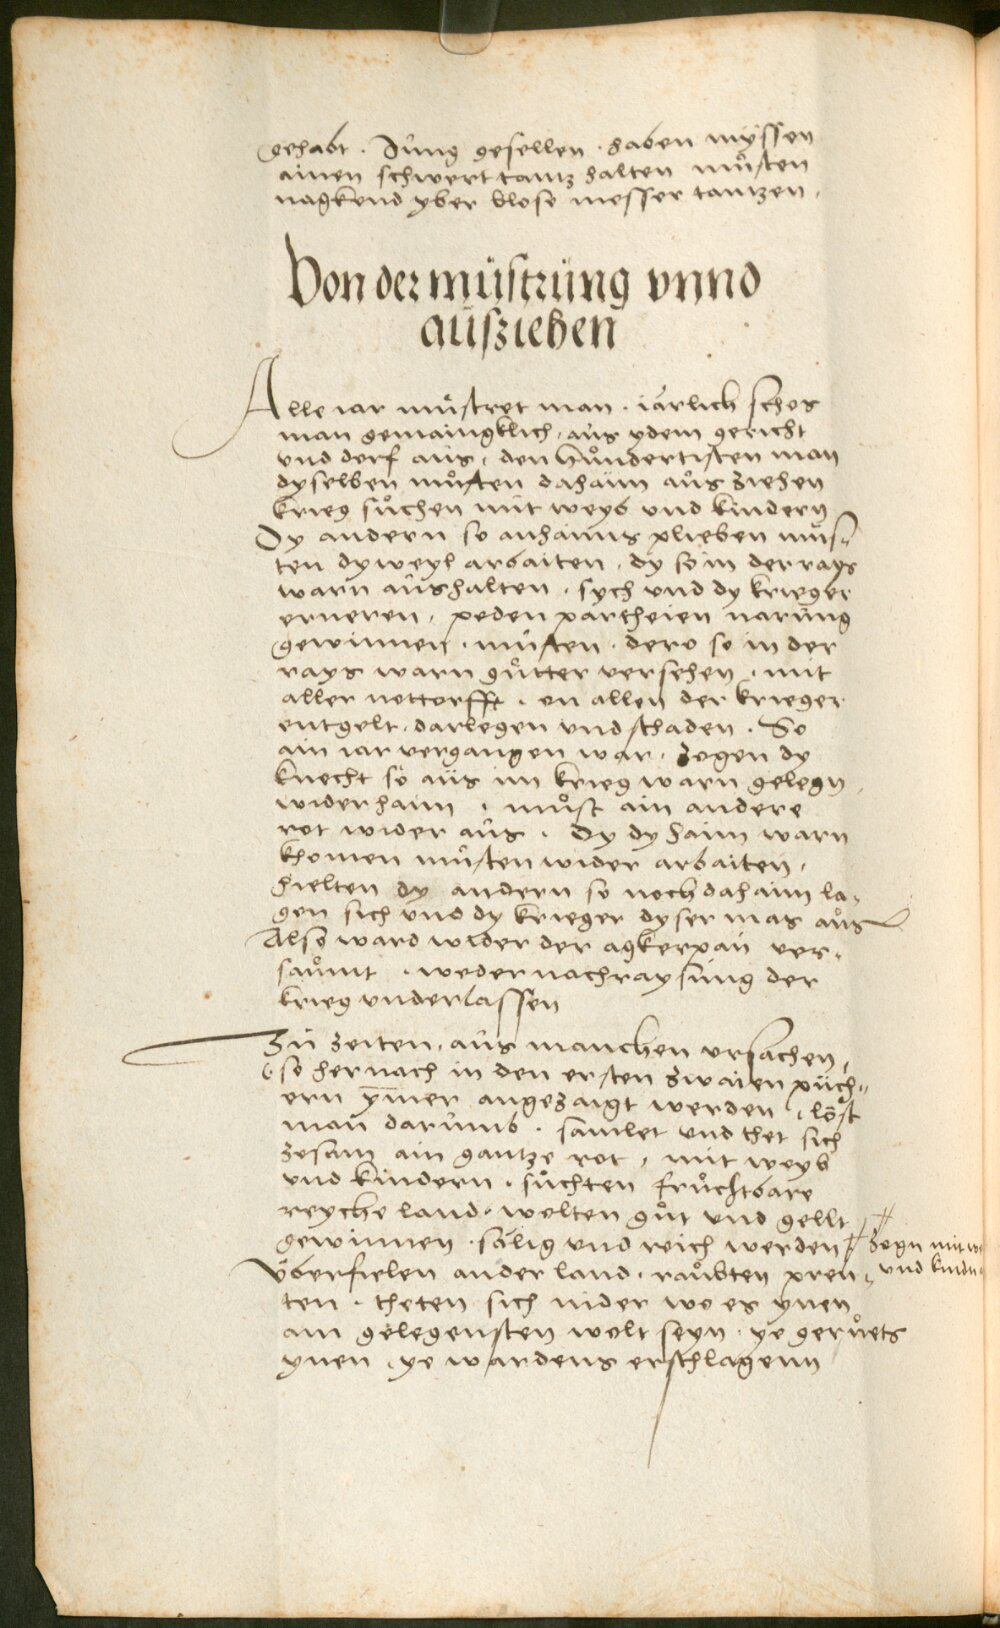 gehabt . Jung gesellen . haben müssen
ainen schwert tantz halten muͦsten
nagkend yber blose messer tantzen .
Von der müstrüng vnnd
aüsziehen
Alle iar muͦstret man . iärlich schos
man gemaingklich . aus ydem gericht
vnd dorf aus , den Huͦndertisten man
dyselben muͦsten dahaim auͦs ziehen
krieg suͦchen mit weyb vnd kindern
Dy andern so anhaims plieben mus-
ten dyweyl arbaiten , dy so in der rays
warn aushalten . sych vnd dy krieger
erneren , peden partheien narung
gewinnen . muͦsten . dero so in der
rays warn guͦtter versehen , mit
aller nottorfft . on allen der krieger
entgelt . darlegen vnd schaden . So
ain iar vergangen war . zogen dy
knecht so aus im krieg warn gelegn ,
wider haim , muͦst ain andere
rot wider aus . Dy dy haim warn
khomen muͦsten wider arbaiten ,
hielten dy andern so noch dahaim la-
gen sich vnd dy krieger dyser mas auͦs
Also ward wider der agkerpau ver-
sauͦmt . weder nachraysung der
krieg vnderlassen
Zu zeiten , aus manchen vrsachen ,
so hernach in den ersten zwaien püch-
ern ym̅er angezaigt werden , löst
man darumb . samlet vnd thet sich
zesam ain gantze rot , mit weyb
vnd kindern . suͦchten fruͦchtbare
reyche land . wolten guͦt vnd gellt
gewinnen . sälig vnd reich werden ⧧ zogn mit we
Vberfielen ander land . rauͦbten pren- vnd kindn
ten . theten sich nider wo es ynen
am gelegensten wolt seyn . ye geruͦets
ynen , ye wardens erschlagenn